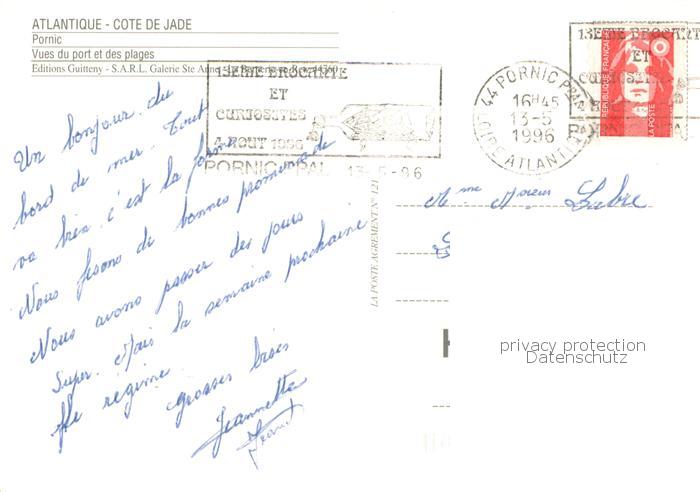 ATLANTIQUE - COTE DE JADE
Pornic
Vues du port et des plages
Editions Guitteny - S.A.R.L. Galerie Ste Anne
13EME BROCANTE
ET
CURIOSITES
4 AOUT 1996
PORNIC PAL 13-5-96
44 PORNIC PPAL
16H45
13-5
1996
LOIRE ATLANTIQUE
13EME BROCANTE
ET
REPUBLIQUE FRANÇAISE
LA POSTE
Un bonjour du
bord de mer. Tout
va bien c'est la forme
Nous fesons de bonnes promenade
Nous avons passer des jours
Super. Mais la semaine prochaine
régime.
grosses bises
Jeannette
LA POSTE AGREMENT N° 121
Mme Labre
privacy protection
Datenschutz